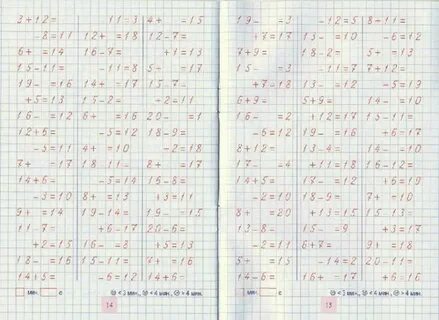 3+12= 11=3 4+ =15
-8=11 12+ =18 12-7=
6+ =14 16-7= +1=13
15-11= -11=8 5+ =17
19- =16 14+ =16 15-7-
+5=13 15-2= +2=11
16- =12 6+ =16 20- =1
12+6= -5=12 18-9=
-5=11 4+ =10 -2=18
7+ =17 18-11= 8+ =17
14+6= -5=14 15-8=
-5=10 8+ =13 +3=11
9+ =14 19-14= 19- =15
11-7= +6=17 20-6=
+2=15 16- =8 +5=13
18- =16 15-11= 7+ =16
14+5= -6=12 14+6=
мин. с < 3 мин., < 4 мин., > 4 мин.
14
19- =3 -12=5 8+11=
+7=17 13- =10 -6=12
7+9= 18-2= 5+ =13
15- =3 -11=7 7+12=
+7=18 13- =12 -2=10
6+9= 5+9= 14- =10
16- =1 +2=17 +6=16
-6=12 19- =16 +6=17
8+12= 13-4= 14- =13
17- =4 +11=18 16-12=
14+5= -7=17 15- =13
-2=10 18-9= 7+ =10
8+ =20 +13=15 15-13=
13-8= 15- =9 +3=17
-2=11 6+7= 9+ =18
5+ =15 -14=2 20-11=
14-6= 16+ =17 +6=16
мин. с < 3 мин., < 4 мин., > 4 мин.
15